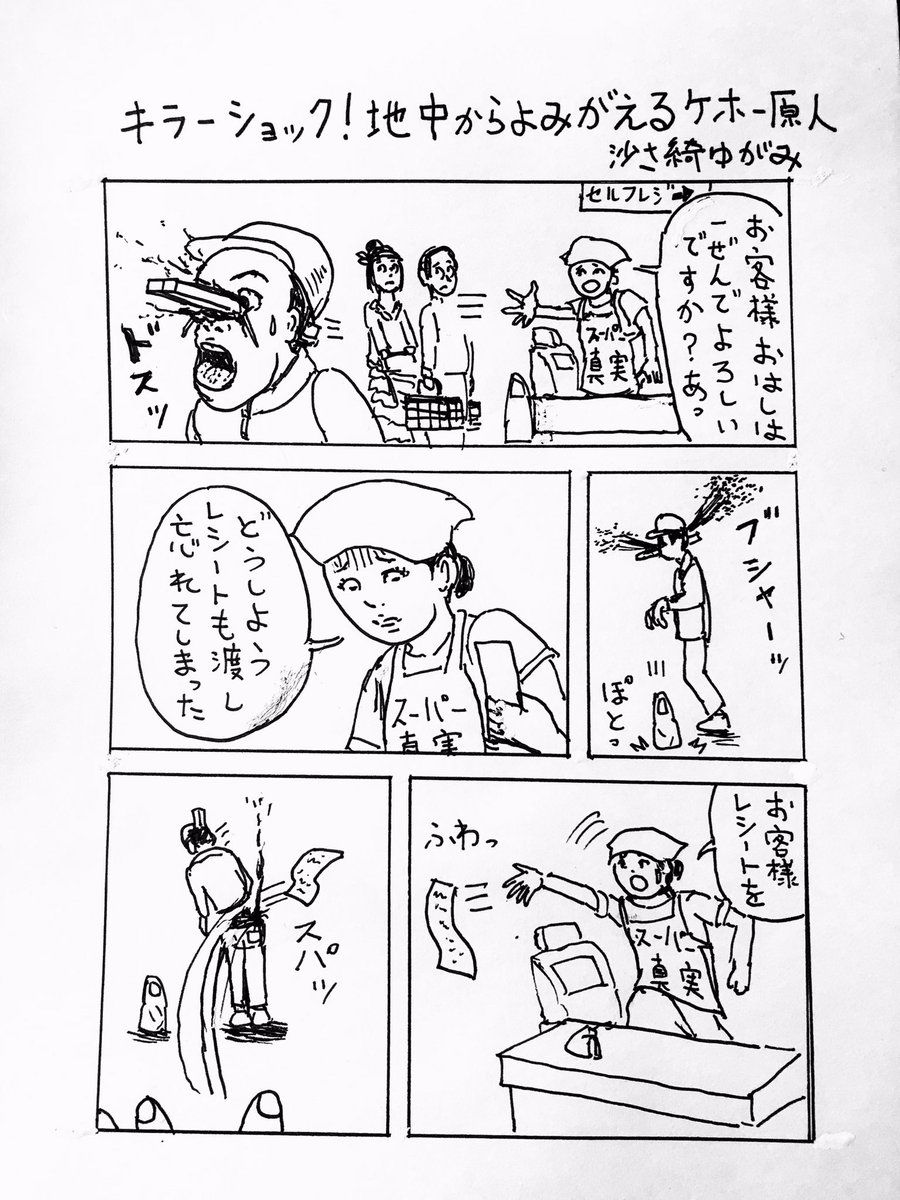 キラーショック！地中からよみがえるケホー原人
沙さ綺ゆがみ
セルフレジ→
お客様おはしは
一ぜんでよろしい
ですか？あっ
スーパー
真実
ドスッ
ブシャーッ
ぽとっ
どうしよう
レシートも渡し
忘れてしまった
スーパー
真実
お客様
レシートを
ふわっ
スーパー
真実
スパッ